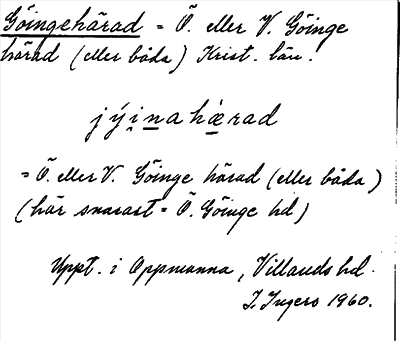 Göingehärad = Ö. eller V. Göinge
härad (eller båda) Krist. län.
jýi̱ṉahæ̱̀rad
= Ö. eller V. Göinge härad (eller båda)
(här snarast = Ö. Göinge hd)
Uppt. i Oppmanna, Villands hd.
I. Ingers 1960.